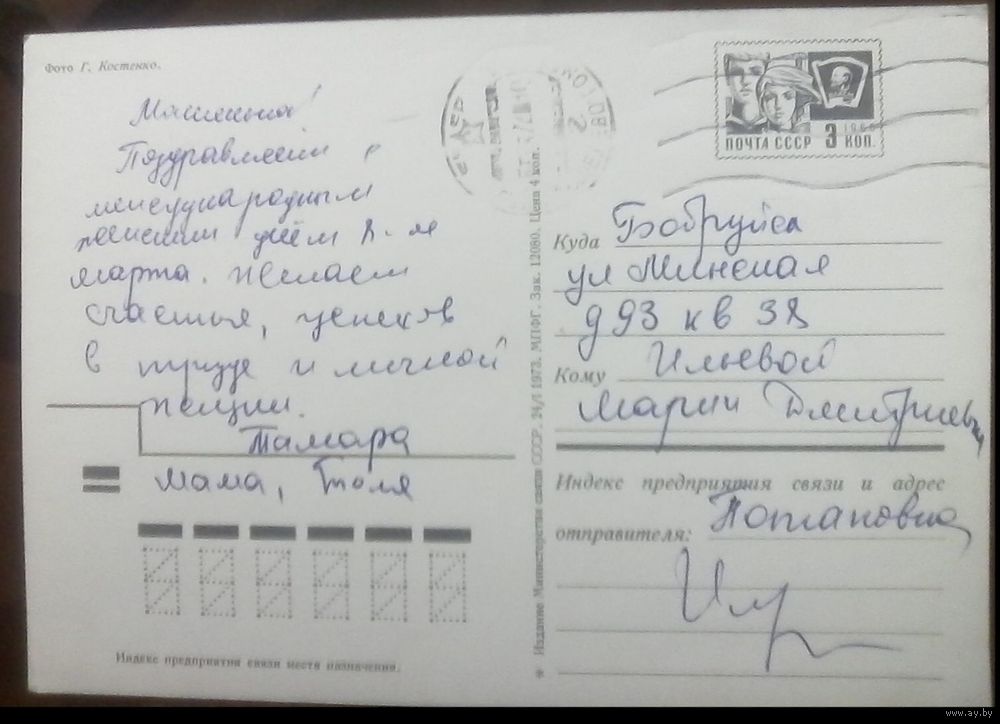 Фото Г. Костенко.
Машенька!
Поздравляем с
международным
женским днём 8-м
марта. Желаем
счастья, успехов
в труде и личной
жизни.
Тамара
мама, Толя
Индекс предприятия связи места назначения.
* Издание Министерства связи СССР. 24/I 1973. МПФГ. Зак. 12080. Цена 4 коп.
СССР
ПОЧТА СССР 3 КОП.
1966
Куда Бобруйск
ул Минская
д 93 кв 38
Кому
Марии Дмитриевны
Индекс предприятия связи и адрес
отправителя:
www.ay.by